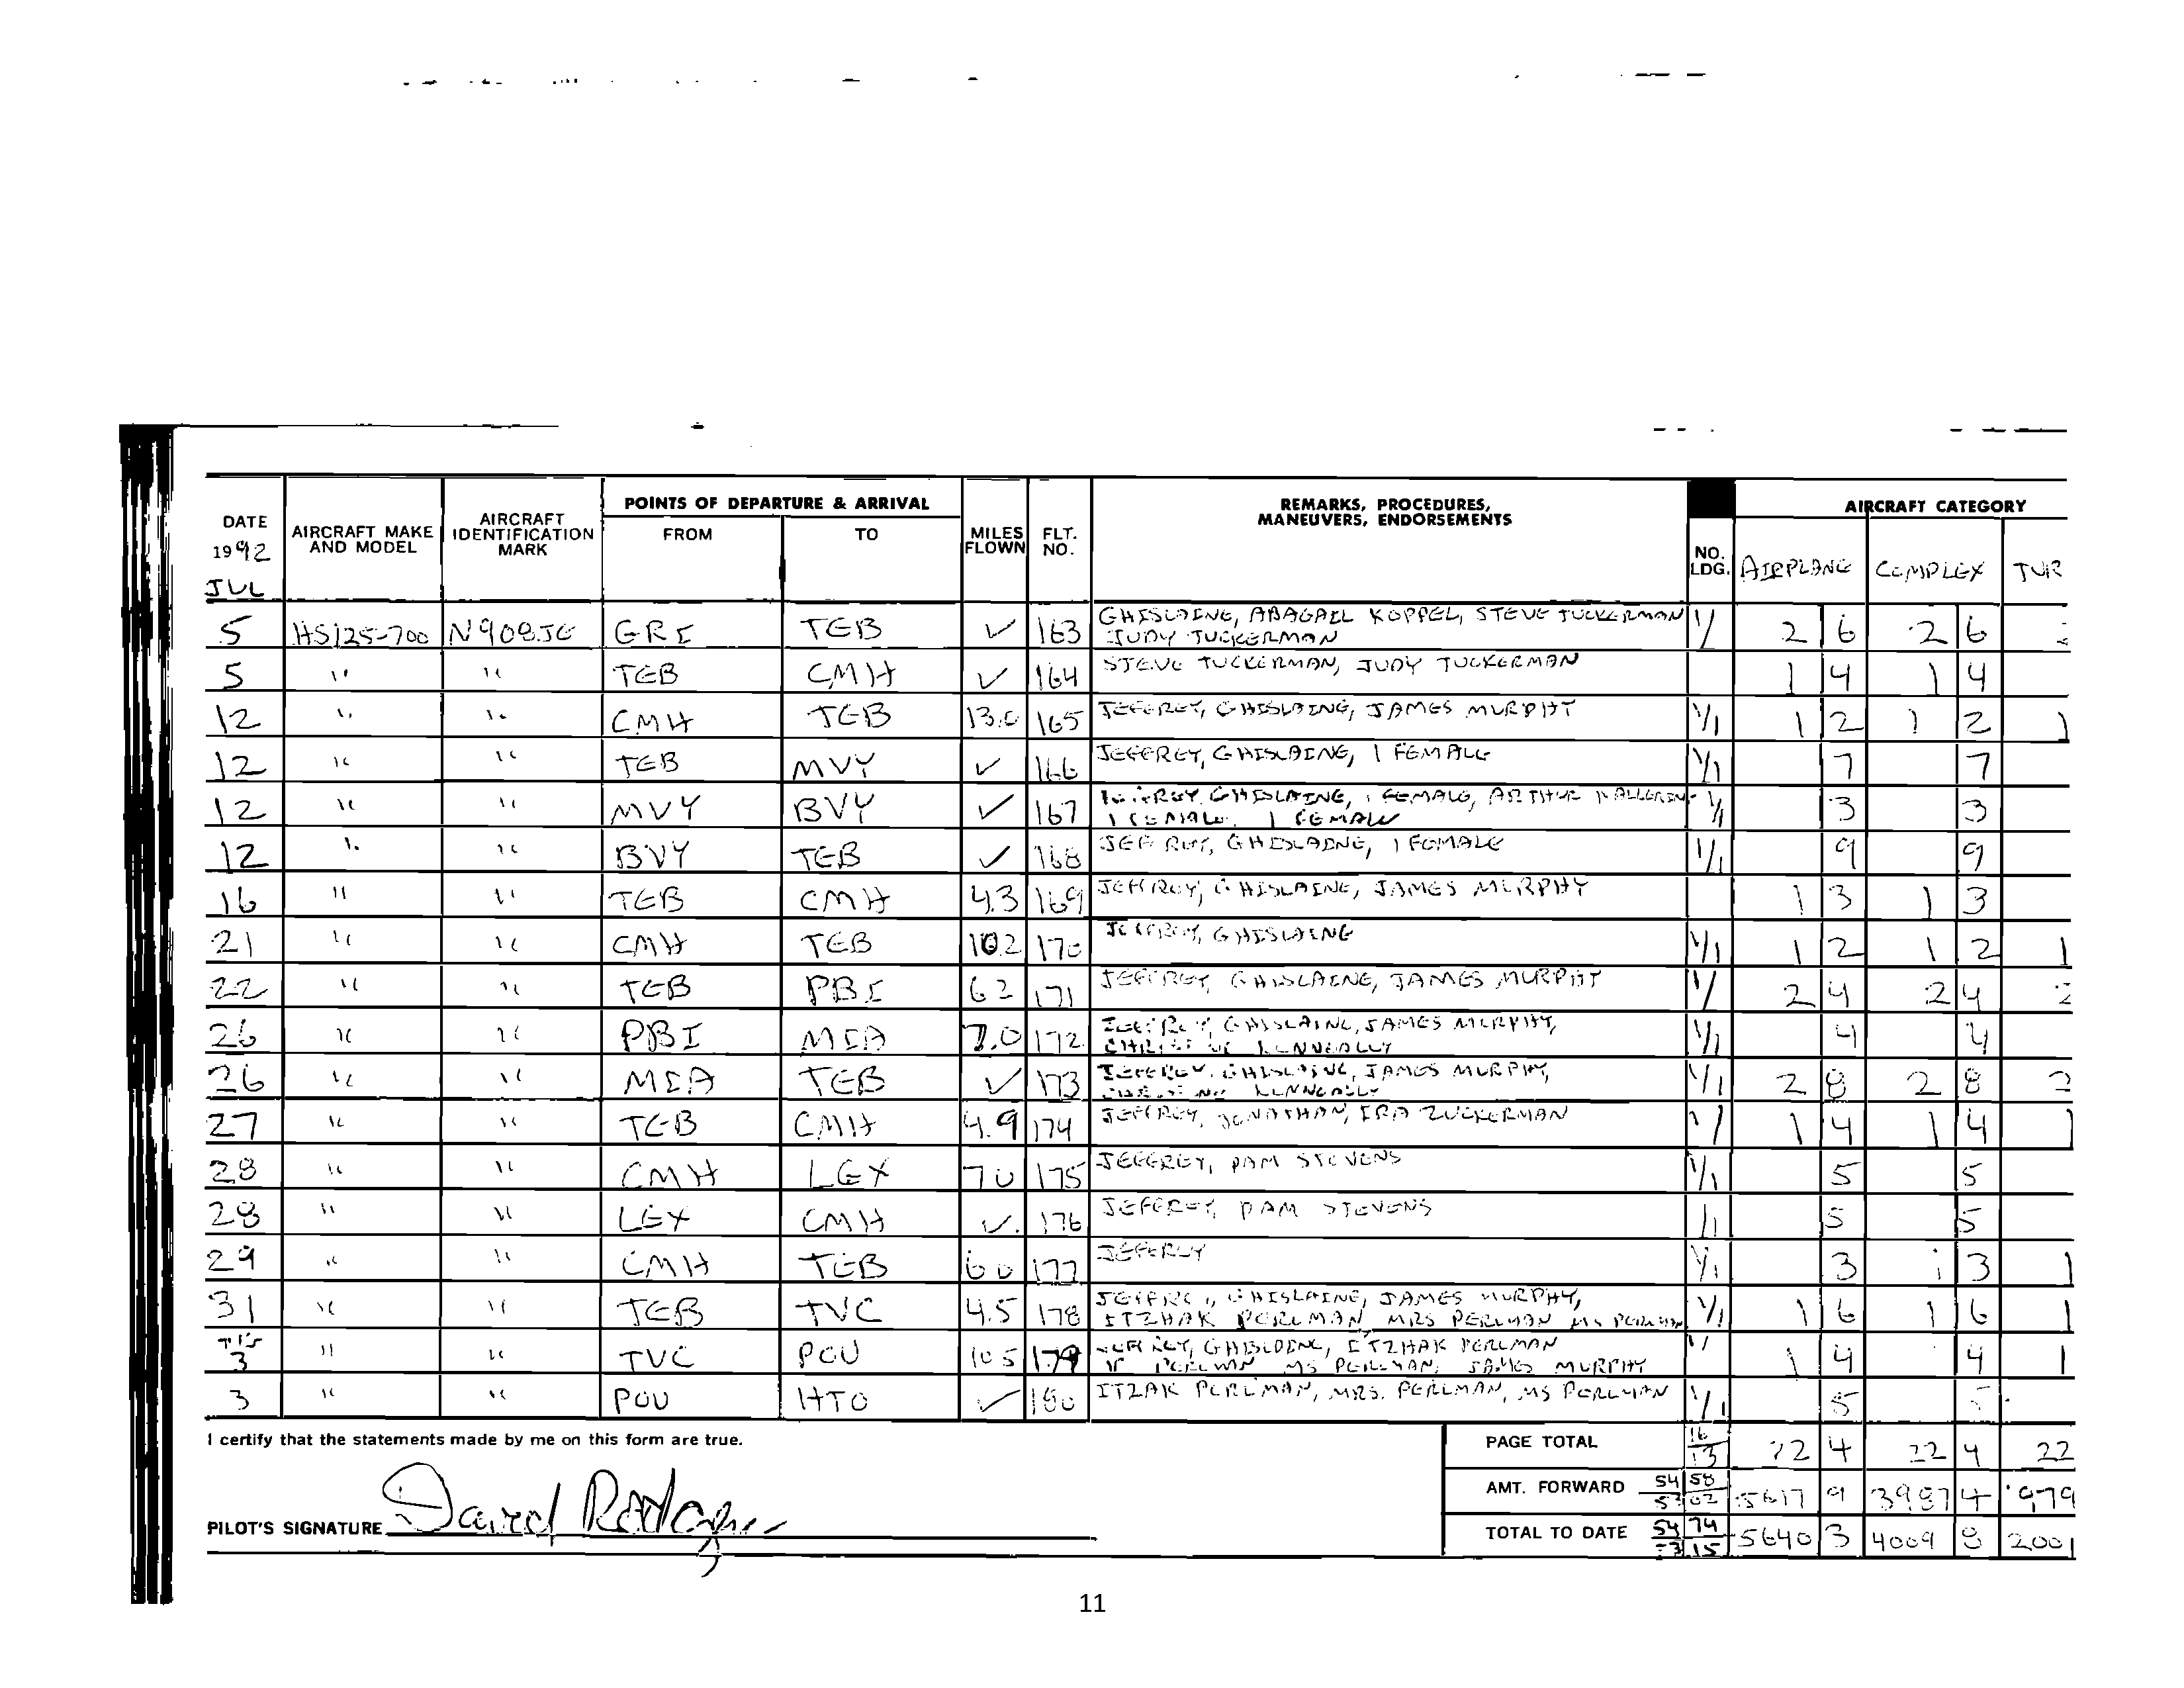 POINTS OF DEPARTURE & ARRIVAL
REMARKS, PROCEDURES, MANEUVERS, ENDORSEMENTS
AIRCRAFT CATEGORY
DATE 1992 JUL
AIRCRAFT MAKE AND MODEL
AIRCRAFT IDENTIFICATION MARK
FROM
TO
MILES FLOWN
FLT. NO.
NO. LDG.
AIRPLANE
COMPLEX
TUR
5 HS125-700 N908JE GRI TEB ✓ 163 GHISLAINE, ABAGAIL KOPPEL, STEVE TUCKERMAN 1/ 2 6 2 6
JUDY TUCKERMAN
5 " " TEB CMH ✓ 164 STEVE TUCKERMAN, JUDY TUCKERMAN 1 4 1 4
12 " " CMH TEB 13.0 165 JEFFREY, GHISLAINE, JAMES MURPHY 1/1 1 2 1 2 1
12 " " TEB MVY ✓ 166 JEFFREY, GHISLAINE, 1 FEMALE 1/1 7 7
12 " " MVY BVY ✓ 167 JEFFREY, GHISLAINE, 1 FEMALE, ARTHUR 1/1 3 3
1 FEMALE, 1 FEMALE
12 " " BVY TEB ✓ 168 JEFFREY, GHISLAINE, 1 FEMALE 1/1 9 9
16 " " TEB CMH 4.3 169 JEFFREY, GHISLAINE, JAMES MURPHY 1 3 1 3
21 " " CMH TEB 102 170 JEFFREY, GHISLAINE 1/1 1 2 1 2 1
22 " " TEB PBI 62 171 JEFFREY, GHISLAINE, JAMES MURPHY 1/ 2 4 2 4 2
26 " " PBI MIA 7.0 172 JEFFREY, GHISLAINE, JAMES MURPHY, 1/1 4 4
KENNEALLY
26 " " MIA TEB ✓ 173 JEFFREY, GHISLAINE, JAMES MURPHY, 1/1 2 8 2 8 2
KENNEALLY
27 " " TEB CMH 4.9 174 JEFFREY, JONATHAN, IRA ZUCKERMAN 1/ 1 4 1 4 1
28 " " CMH LEX 70 175 JEFFREY, PAM STEVENS 1/1 5 5
28 " " LEX CMH ✓ 176 JEFFREY, PAM STEVENS /1 5 5
29 " " CMH TEB 60 177 JEFFREY 1/1 3 1 3 1
31 " " TEB TVC 4.5 178 JEFFREY, GHISLAINE, JAMES MURPHY, 1/1 1 6 1 6 1
ITZHAK PERLMAN, MRS PERLMAN MS PERLMAN
3 " " TVC POU 105 179 JEFFREY, GHISLAINE, ITZHAK PERLMAN 1/ 1 4 4 1
PERLMAN MS PERLMAN, JAMES MURPHY
3 " " POU HTO ✓ 180 ITZAK PERLMAN, MRS. PERLMAN, MS PERLMAN 1/1 5 5
I certify that the statements made by me on this form are true.
PAGE TOTAL 16/13 22 4 22 4 22
AMT. FORWARD 5458 5617 9 3987 4 979
PILOT'S SIGNATURE David Rodgers
TOTAL TO DATE 5474 5640 3 4009 8 2001
11